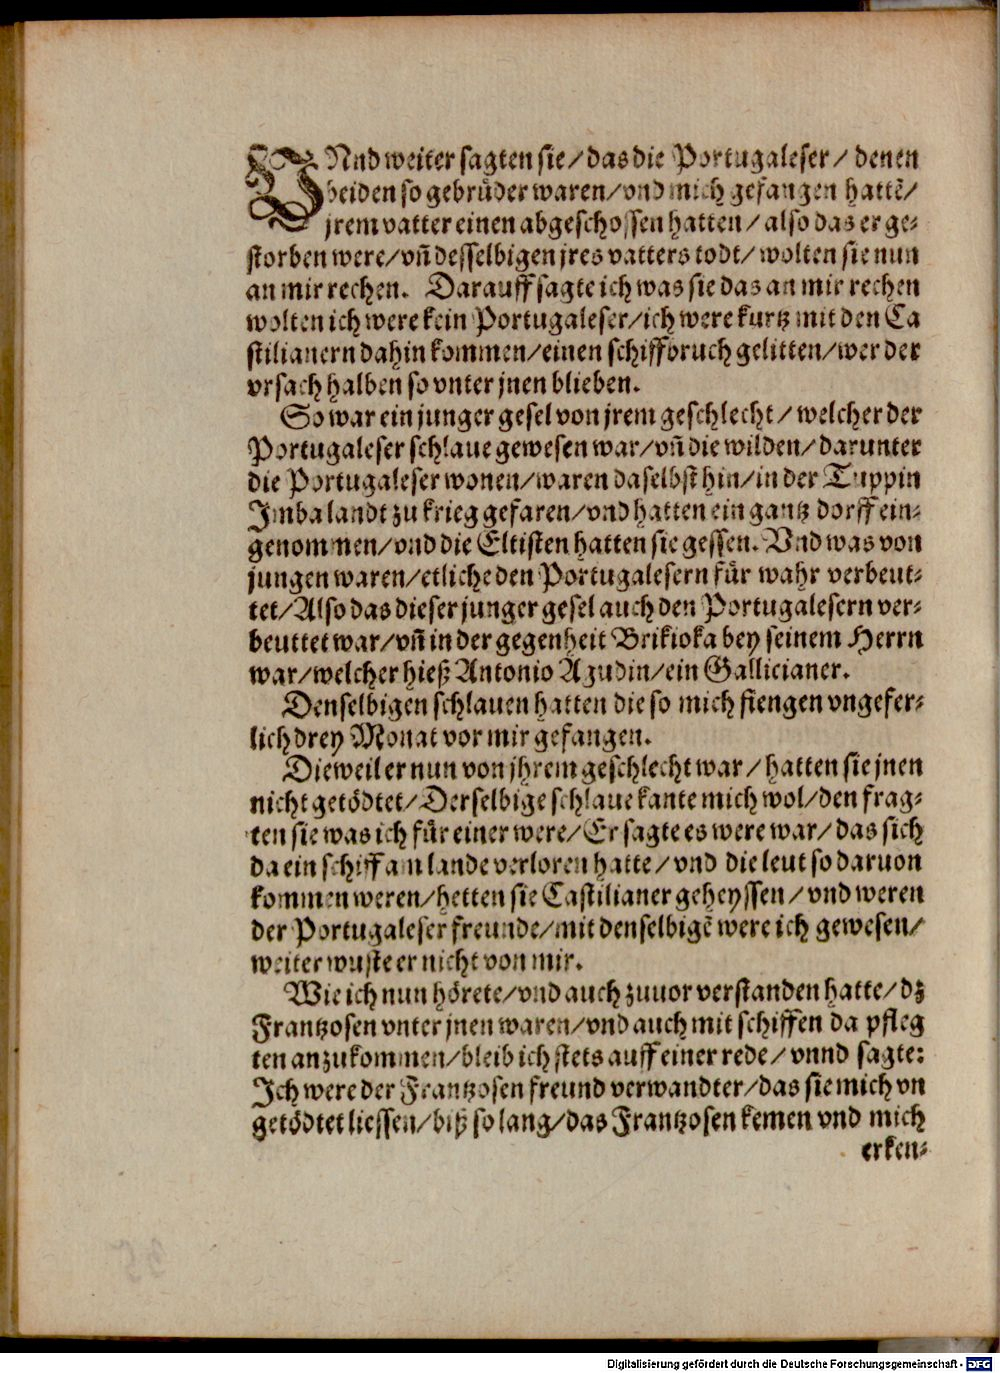 VNnd weiter sagten sie/ das die Portugaleser/ denen
beiden so gebrůder waren/ vnd mich gefangen hattẽ/
jrem vatter einen abgeschossen hatten/ also das er ge-
storben were/ vñ desselbigen jres vatters todt/ wolten sie nun
an mir rechen. Darauff sagte ich was sie das an mir rechen
wolten ich were kein Portugaleser/ ich were kurtz mit den Ca
stilianern dahin kommen/ einen schiffbruch gelitten/ wer der
vrsach halben so vnter jnen blieben.
So war ein junger gesel von jrem geschlecht/ welcher der
Portugaleser schlaue gewesen war/ vñ die wilden/ darunter
die Portugaleser wonen/ waren daselbst hin/ in der Tuppin
Imba landt zu krieg gefaren/ vnd hatten ein gantz dorff ein-
genommen/ vnd die Eltisten hatten sie gessen. Vnd was von
jungen waren/ etliche den Portugalesern fůr wahr verbeut-
tet/ Also das dieser junger gesel auch den Portugalesern ver-
beuttet war/ vñ in der gegenheit Brikioka bey seinem Herrn
war/ welcher hieß Antonio Agudin/ ein Gallicianer.
Denselbigen schlauen hatten die so mich fiengen vngefer-
lich drey Monat vor mir gefangen.
Dieweil er nun von jhrem geschlecht war/ hatten sie jnen
nicht getödtet/ Derselbige schlaue kante mich wol/ den frag-
ten sie was ich fůr einer were/ Er sagte es were war/ das sich
da ein schiff am lande verloren hatte/ vnd die leut so daruon
kommen weren/ hetten sie Castilianer geheyssen/ vnd weren
der Portugaleser freunde/ mit denselbigẽ were ich gewesen/
weiter wuste er nicht von mir.
Wie ich nun hörete/ vnd auch zuuor verstanden hatte/ dz
Frantzosen vnter jnen waren/ vnd auch mit schiffen da pfleg
ten anzukommen/ bleib ich stets auff einer rede/ vnnd sagte:
Ich were der Frantzosen freund verwandter/ das sie mich vn
getödtet liessen/ biß so lang/ das Frantzosen kemen vnd mich
erken-
Digitalisierung gefördert durch die Deutsche Forschungsgemeinschaft - DFG